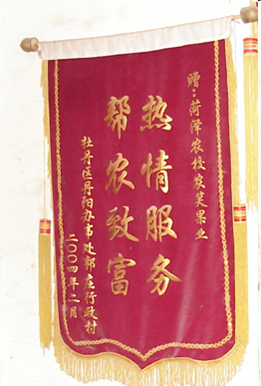 赠：菏泽农校农笑果业
热情服务
帮农致富
牡丹区丹阳办事处郭庄行政村
二〇〇四年二月